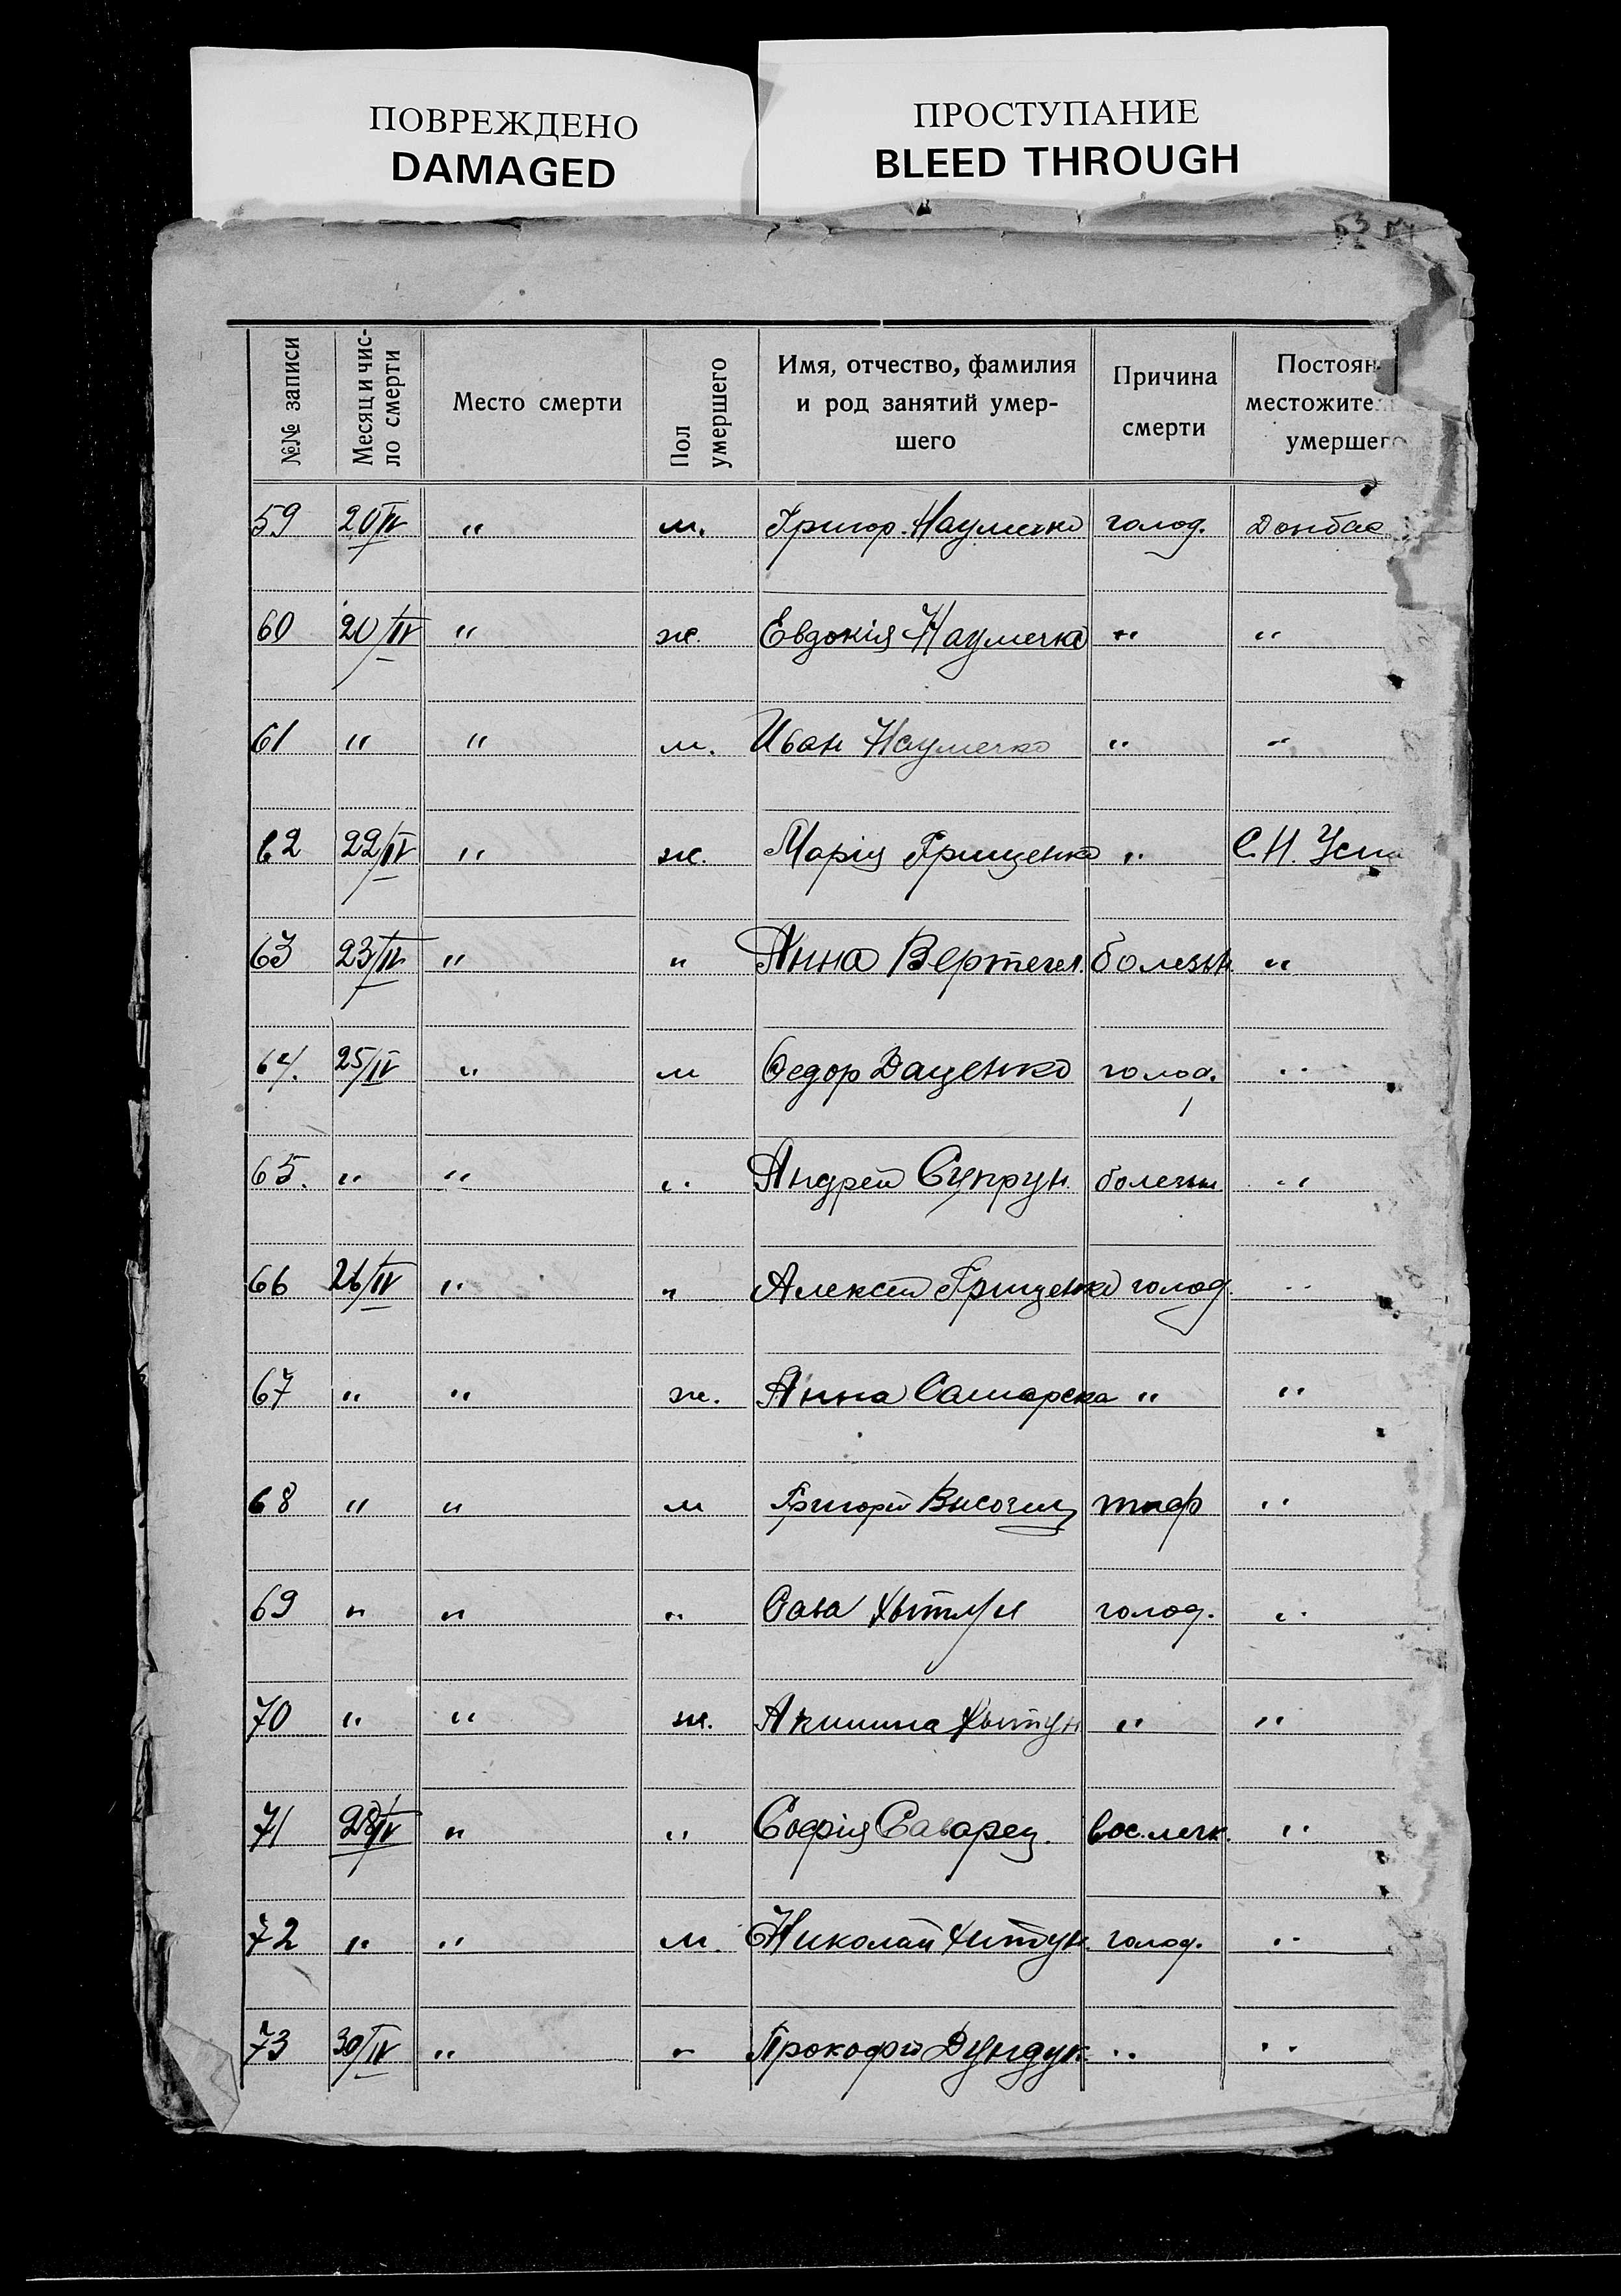 ПОВРЕЖДЕНО
DAMAGED
ПРОСТУПАНИЕ
BLEED THROUGH
63
№№ записи
Месяц и чис-
ло смерти
Место смерти
Пол
умершего
Имя, отчество, фамилия
и род занятий умер-
шего
Причина
смерти
Постоян
местожител
умершего
59 20/IV " м. Григор. Наумечко голод. Донбас
60 20/IV " ж. Евдокія Наумечка " "
61 " " м. Иван Наумечко " "
62 22/IV " ж. Марія Грищенко " С.Н. Усп
63 23/IV " " Анна Вертегел. болезн. "
64. 25/IV " м Федор Даценко голод. "
65. " " " Андрей Супрун болезн "
66 26/IV " " Алексей Грищенко голод. "
67 " " ж. Анна Самарска " "
68 " " м Григорій Высочин тиф "
69 " " " Сава Хытун голод. "
70 " " ж. Акилина Хытун " "
71 28/IV " " Софія Саварец. вос. легк. "
72 " " м. Николай Хитун. голод. "
73 30/IV " " Прокофій Дундук. " "